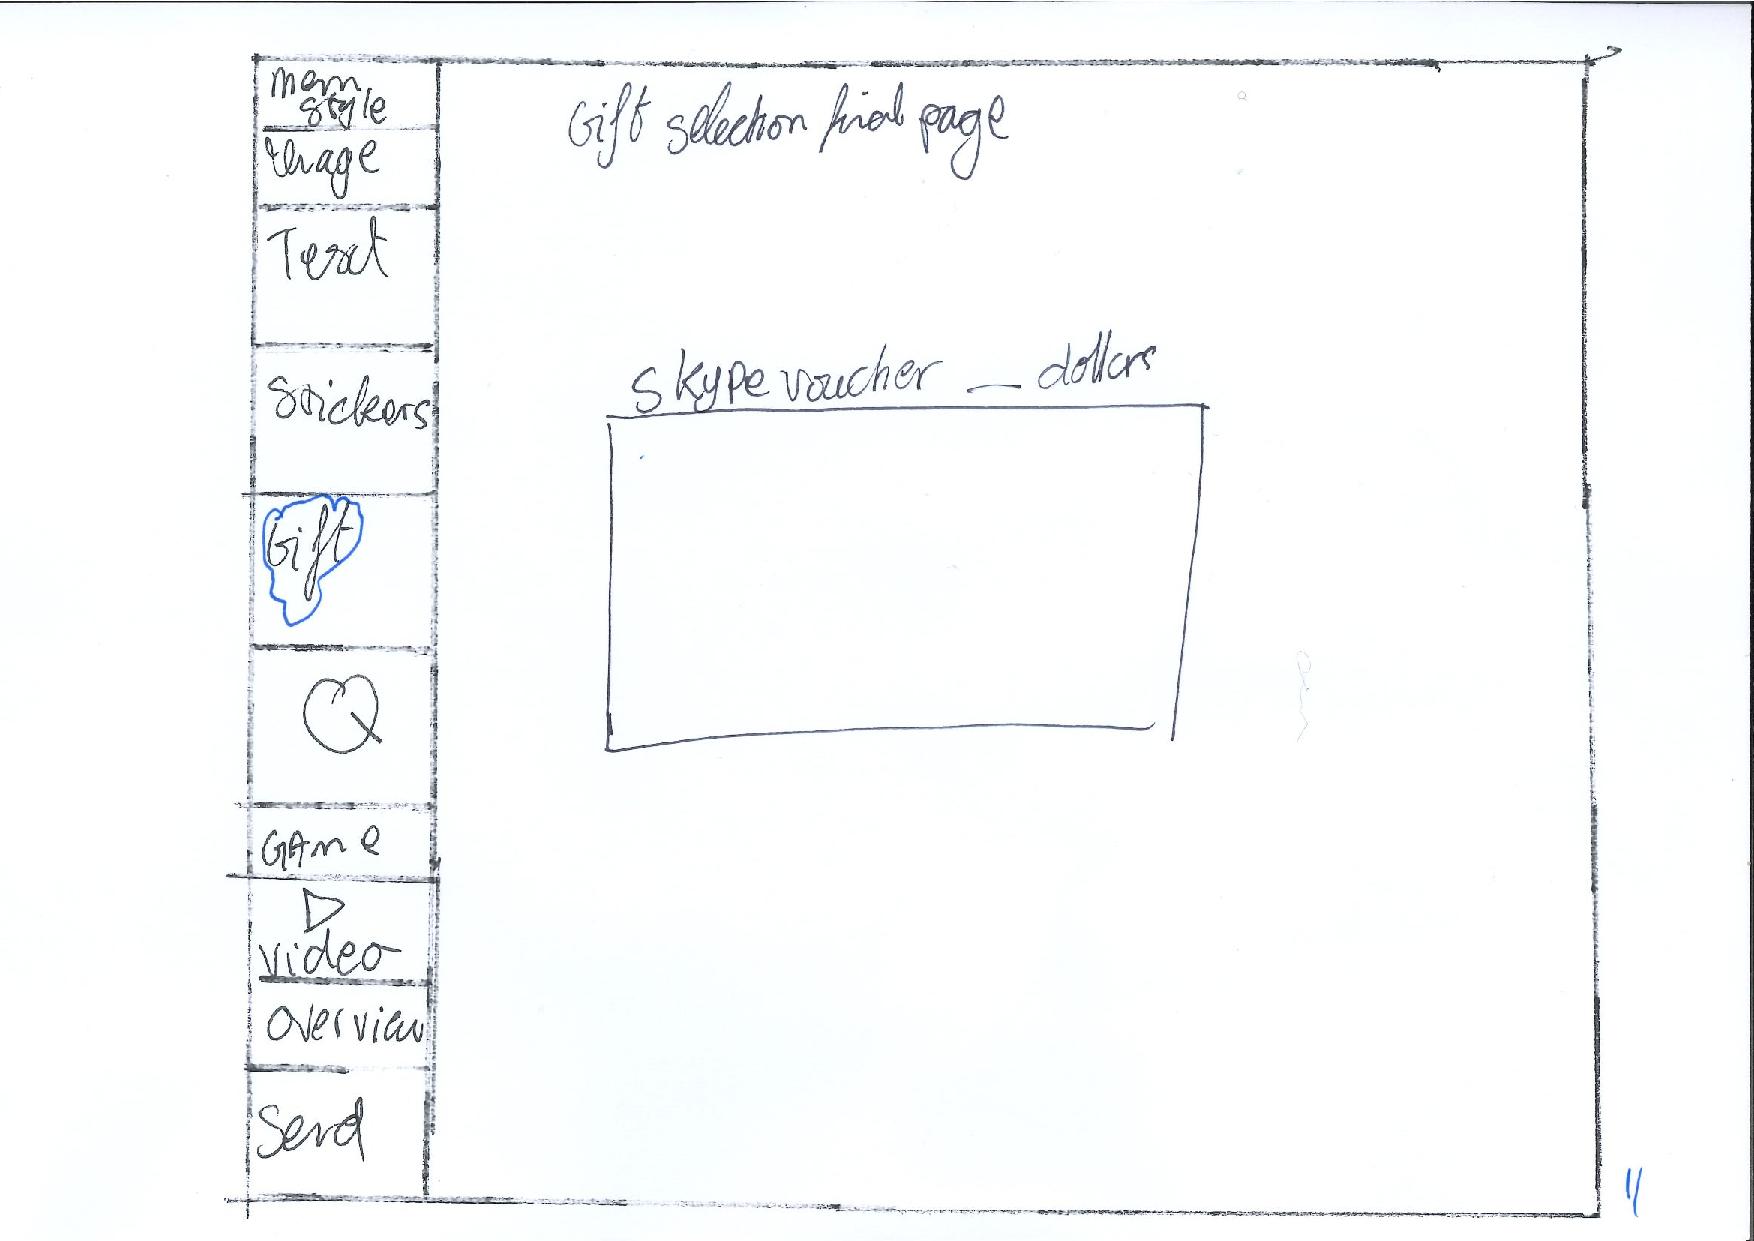 mem
style
image
Text
Stickers
Gift
GAme
video
overview
Send
Gift selection final page
skype voucher _ dollars
11